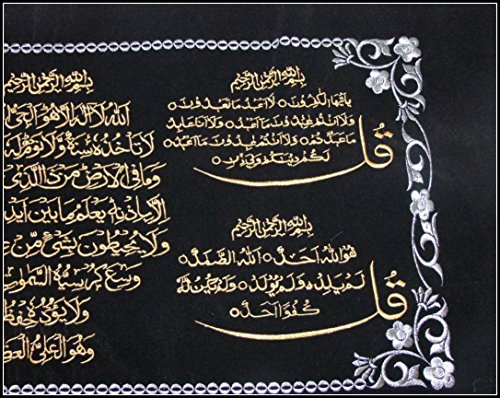 بِسْمِ اللهِ الرَّحْمٰنِ الرَّحِيْمِ
قُلْ يٰاَيُّهَا الْكٰفِرُوْنَ ۝ لَا اَعْبُدُ مَا تَعْبُدُوْنَ ۝
وَلَا اَنْتُمْ عٰبِدُوْنَ مَا اَعْبُدُ ۝ وَلَا اَنَا عَابِدٌ
مَا عَبَدْتُّمْ ۝ وَلَا اَنْتُمْ عٰبِدُوْنَ مَا اَعْبُدُ ۝
لَكُمْ دِيْنُكُمْ وَلِيَ دِيْنِ ۝
بِسْمِ اللهِ الرَّحْمٰنِ الرَّحِيْمِ
قُلْ هُوَ اللهُ اَحَدٌ ۝ اَللهُ الصَّمَدُ ۝
لَمْ يَلِدْ ۝ وَلَمْ يُوْلَدْ ۝ وَلَمْ يَكُنْ لَّهٗ
كُفُوًا اَحَدٌ ۝
بِسْمِ اللهِ الرَّحْمٰنِ الرَّحِيْمِ
اَللهُ لَا اِلٰهَ اِلَّا هُوَ الْحَيُّ
لَا تَأْخُذُهٗ سِنَةٌ وَّلَا نَوْمٌ لَهٗ
وَمَا فِي الْاَرْضِ مَنْ ذَا الَّذِيْ
اِلَّا بِاِذْنِهٖ يَعْلَمُ مَا بَيْنَ اَيْدِ
وَلَا يُحِيْطُوْنَ بِشَيْءٍ مِّنْ عِ
وَسِعَ كُرْسِيُّهُ السَّمٰوٰتِ
وَلَا يَؤُدُهٗ حِفْظُ
وَهُوَ الْعَلِيُّ الْعَظِ